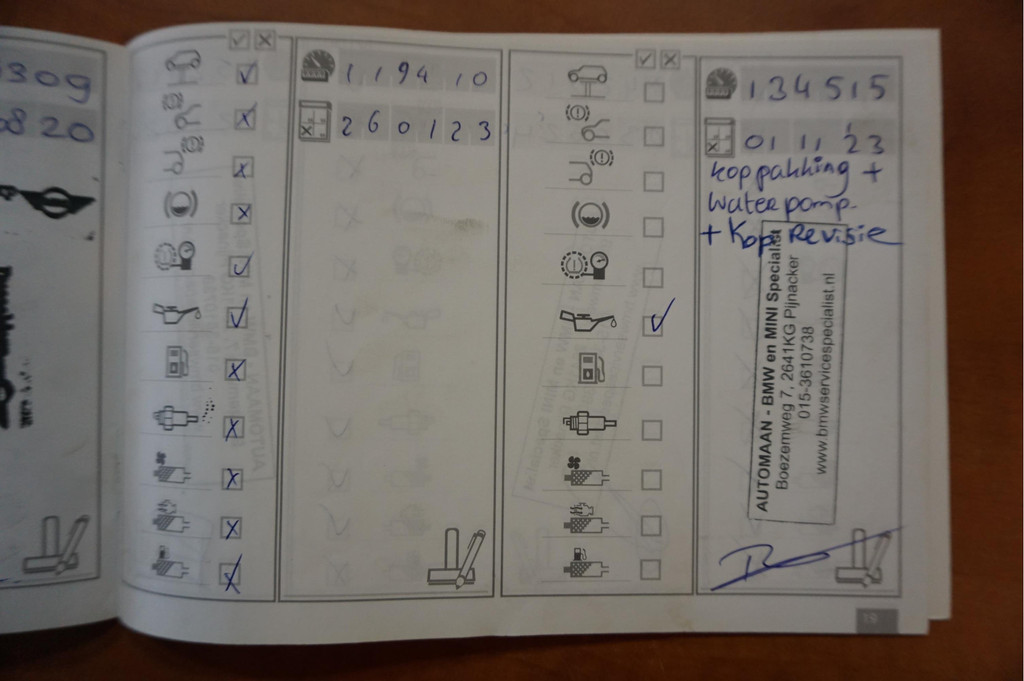 309
0820
119410
260123
134515
01 11 23
koppakking +
Waterpomp.
+ Kop Revisie
AUTOMAAN - BMW en MINI Specialist
Boezemweg 7, 2641KG Pijnacker
015-3610738
www.bmwservicespecialist.nl
19